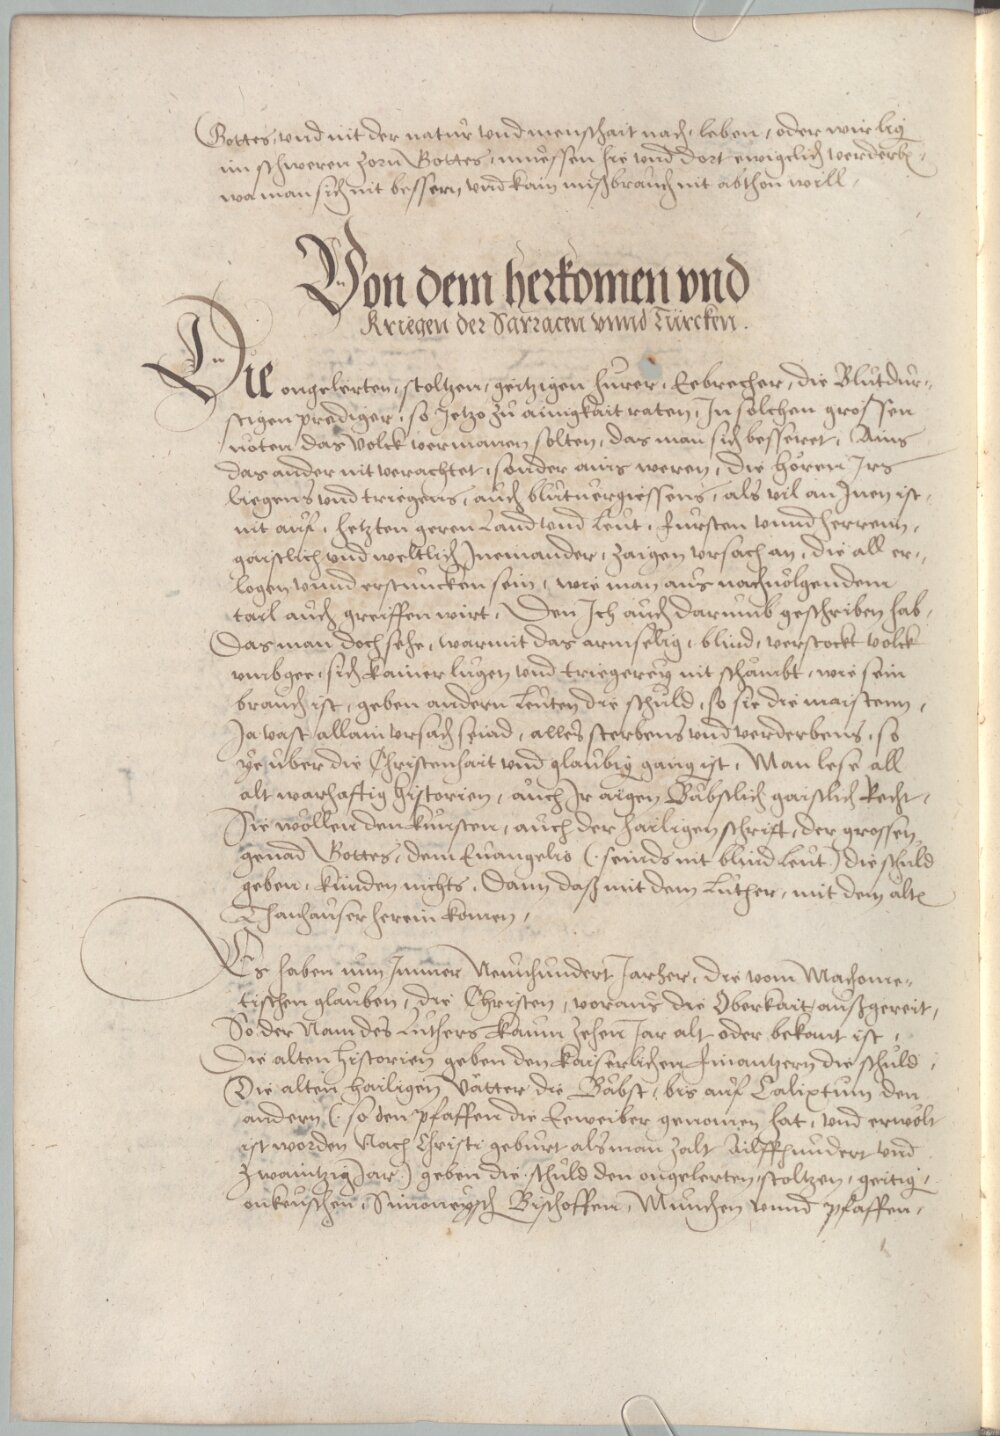 Gottes, vnd nit der natur vnd menschait nach, leben, oder wir lig
im schweren zorn Gottes, muessen hie vnd dort ewigclich verderbe,
wa man sich nit bessern vnd kain mißbrauch nit abthon will,
Von dem herkomen vnd
Kriegen der Sarracen vnnd Türcken.
Die ongelerten, stoltzen, geitzigen hurer, Eebrecher, die Blutdur-
stigen prediger, so Jetzo zu ainigkait raten, In solchen grossen
nöten das Volck vermanen solten, das man sich besseret, Ains
das ander nit verachtet, sonder ains weren, die hören Irs
liegens vnd triegens, auch blutuergiessens, als vil an Inen ist,
nit auf, hetzten geren Land vnd Leut, Fürsten vnnd herrenn,
gaistlich vnd weltlich Ineinander, zaigen vrsach an, die all er-
logen vnnd erstuncken sein, wie man aus nachuolgendem
tail auch greiffen wirt, Den Ich auch darumb geschriben hab,
Das man doch sehe, warmit das armselig, blind, verstockt volck
vmbgee, sich kainer lugen vnd triegerey nit schämbt, wie sein
brauch ist, geben andern Leuten die schuld, so sie die maistenn,
Ja vast allain vrsach seind, alles sterbens vnd verderbens, so
ye über die Christenhait vnd glaubig gang ist, Man lese all
alt warhafftig historien, auch Ir aigen Bäbstlich gaistlich Recht,
Sie wöllen den kunsten, auch der hailigen schrift, der grossen
genad Gottes, dem Euangelio (seinds nit blind leut) die schuld
geben, kunden nichts, Dann daß mit dem Luther, mit dem alte
Thanhauser herein komen,
Es haben nun Immer Neunhundert Jar her, die vom Machome-
tischen glauben, die Christen, vorauß die Oberkait, außgereit,
So der Nam des Luthers kaum zehen Jar alt oder bekant ist,
Die alten historien geben den kaiserlichen Finantzern die schuld,
Die alten hailigen Vätter die Bäbst, bis auf Calixtum den
andern (so den pfaffen die Eeweiber genomen hat, vnd erwölt
ist worden Nach Christi geburt als man zalt Ailffhundert vnd
zwaintzig Jar) geben die schuld den ongelerten, stoltzen, geitig,
onkeuschen, Simoneysch Bischoffen, Munchen vnnd pfaffen,